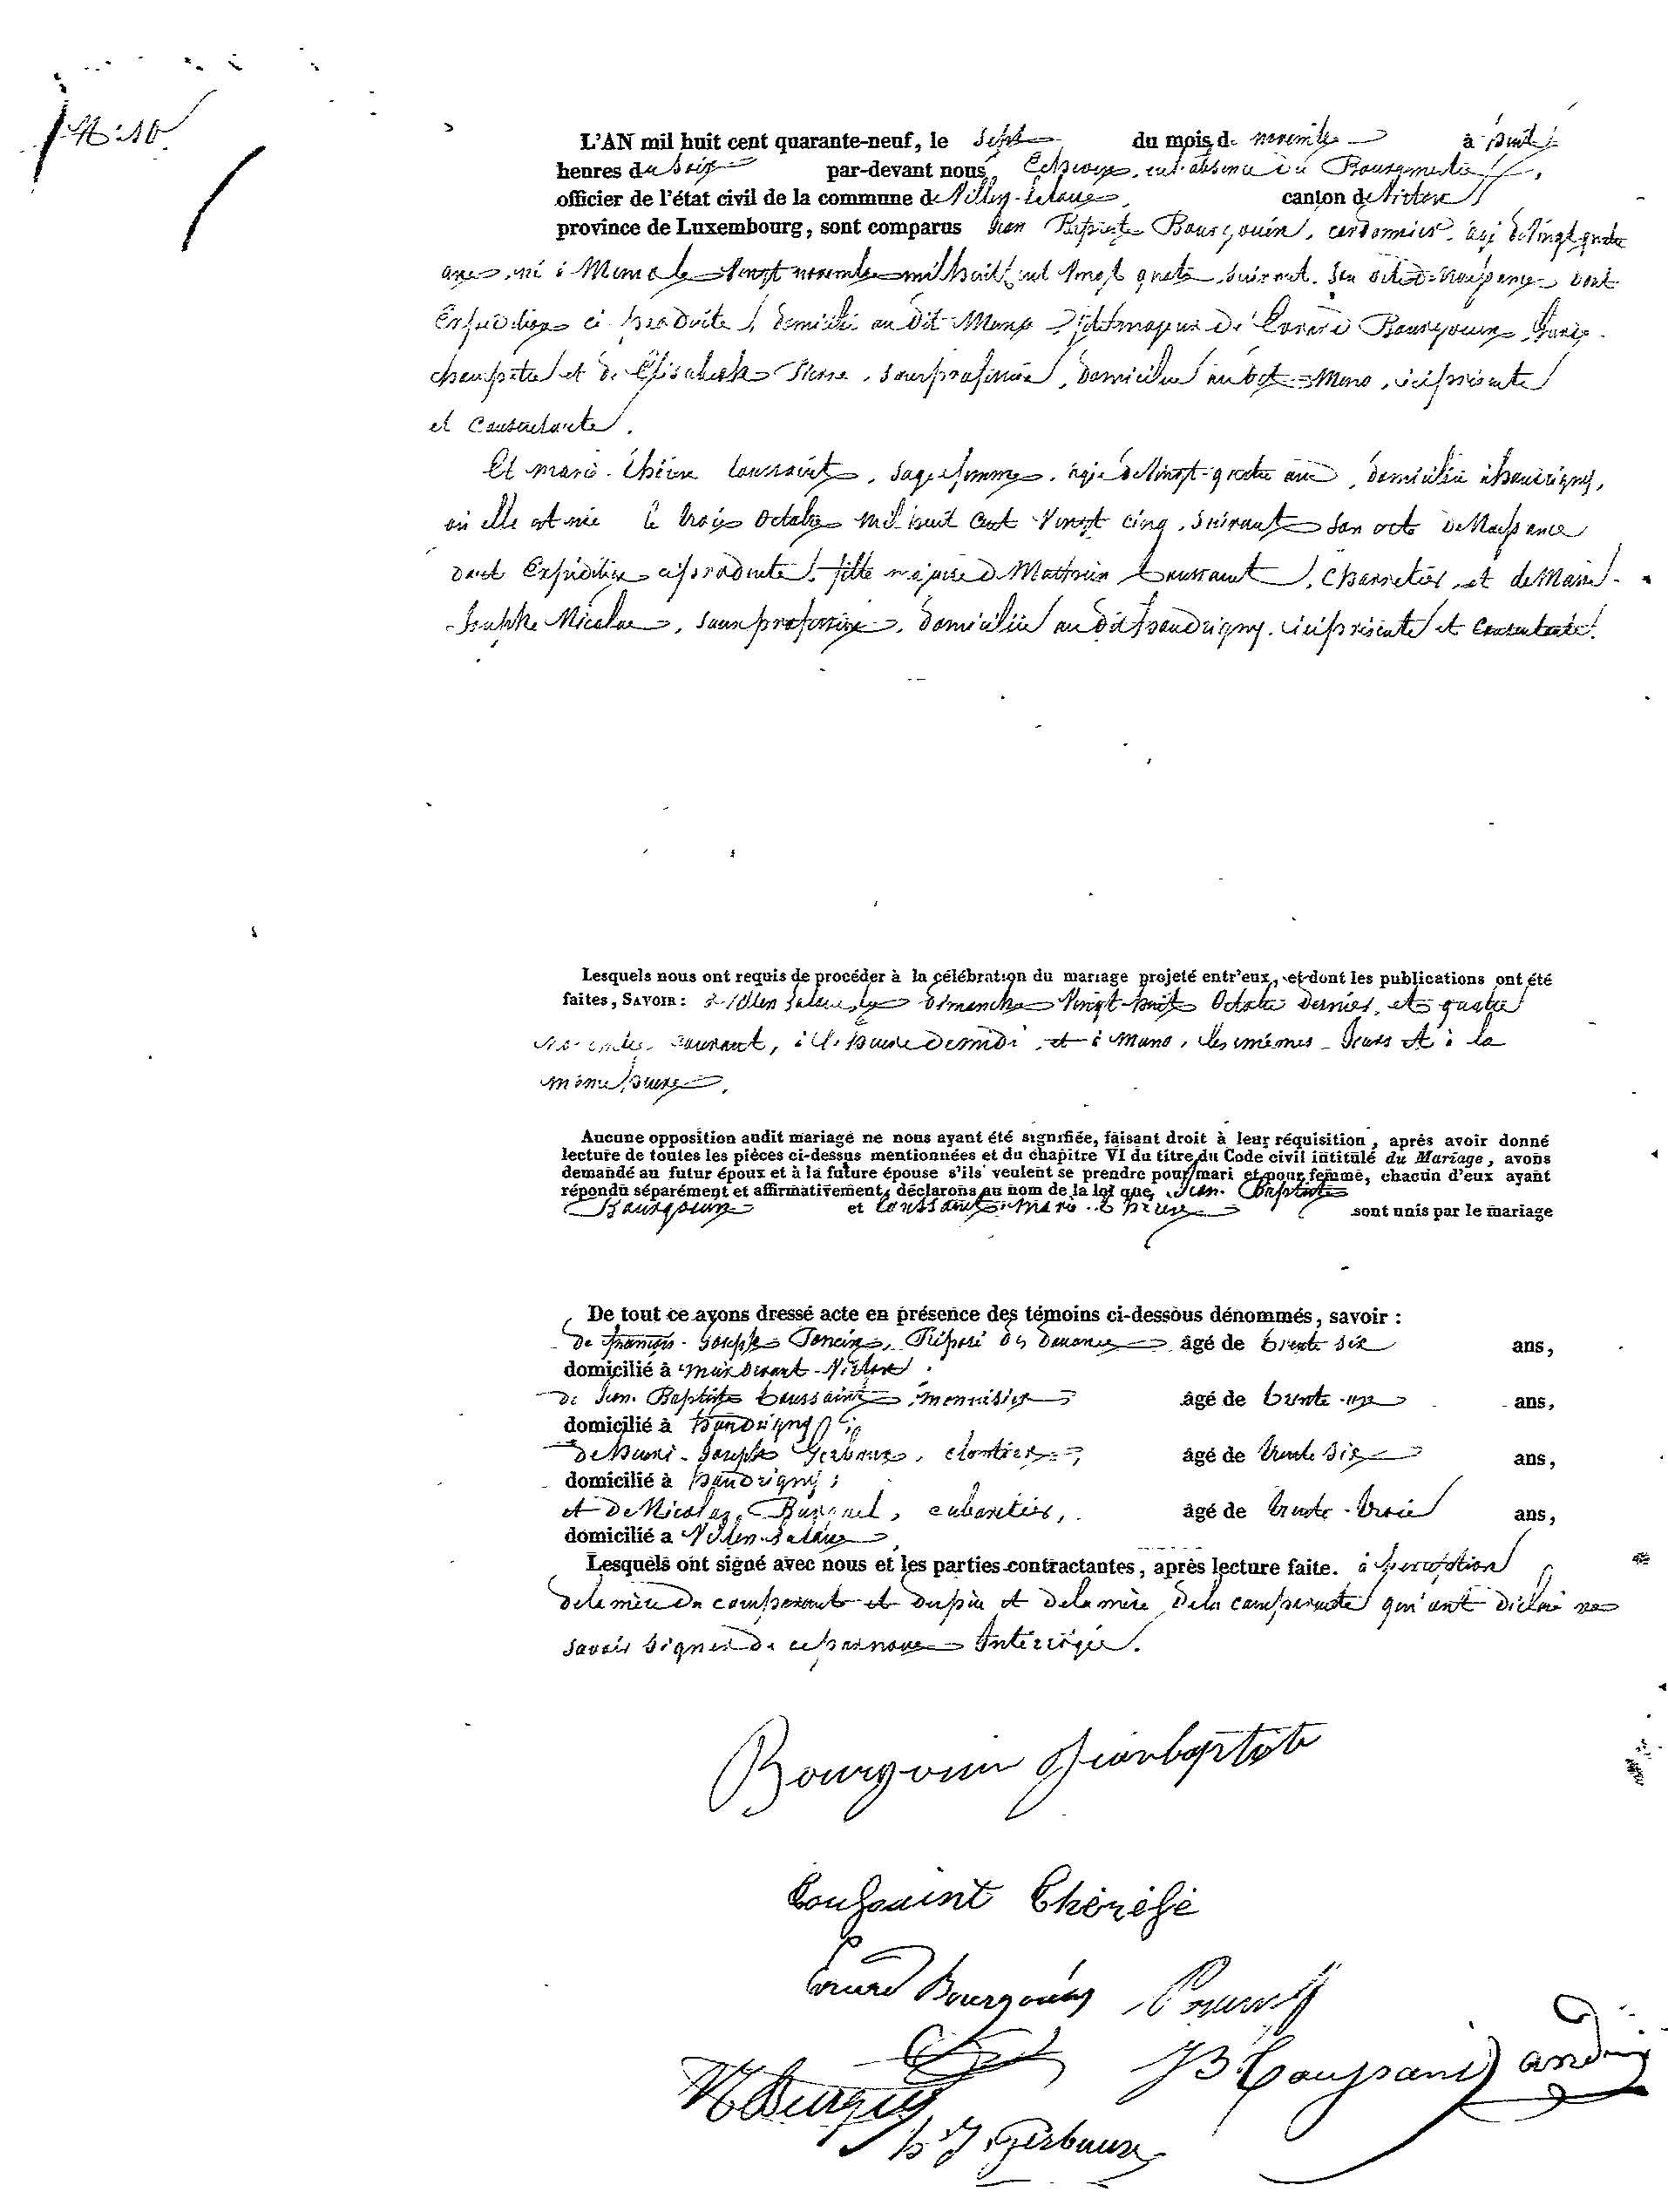 N° 10
L'AN mil huit cent quarante-neuf, le sept du mois de novembre à huit
heures du soir par-devant nous, Echevin, en l'absence du Bourgmestre,
officier de l'état civil de la commune de Villers-Laloue, canton de Virton
province de Luxembourg, sont comparus Jean Baptiste Bourgouin, cordonnier, âgé de vingt quatre
ans, né à Musso le vingt novembre mil huit cent vingt quatre, suivant son acte de naissance dont
Expédition ci produite, domicilié au dit Musso, fils majeur de Conrard Bourgouin, Garde
champêtre et de Elisabeth Pierre, sans profession, domiciliés au dit Musso, ici présents
et Consentants.
Et marie Thérèse Toussaint, sage femme, âgée de vingt-quatre ans, domiciliée à handrigny,
où elle est née le trois Octobre mil huit cent vingt cinq, suivant son acte de Naissance
dont Expédition ci produite, fille majeure de Mathieu Toussaint, Charretier, et de Marie
Josephe Nicolas, sans profession, domiciliés au dit handrigny, ici présents et consentants.
Lesquels nous ont requis de procéder à la célébration du mariage projeté entr'eux, et dont les publications ont été
faites, SAVOIR : à Villers Laloue, les dimanches vingt-huit Octobre dernier, et quatre
novembre courant, à l'heure de midi, et à Musso, les mêmes Jours et à la
même heure.
Aucune opposition audit mariage ne nous ayant été signifiée, faisant droit à leur réquisition, après avoir donné
lecture de toutes les pièces ci-dessus mentionnées et du chapitre VI du titre du Code civil intitulé du Mariage, avons
demandé au futur époux et à la future épouse s'ils veulent se prendre pour mari et pour femme, chacun d'eux ayant
répondu séparément et affirmativement, déclarons au nom de la loi que, Jean Baptiste
Bourgouin et Toussaint marie Thérèse sont unis par le mariage
De tout ce avons dressé acte en présence des témoins ci-dessous dénommés, savoir :
de françois Joseph Poncin, Préposé des douanes âgé de trente six ans,
domicilié à Virton
de Jean Baptiste Toussaint, menuisier âgé de trente un ans,
domicilié à handrigny;
de henri Joseph Gerbaux, cloutier, âgé de trente six ans,
domicilié à handrigny;
et de Nicolas Burquel, cabaretier, âgé de trente-trois ans,
domicilié a Villers-Laloue
Lesquels ont signé avec nous et les parties contractantes, après lecture faite. à l'exception
de la mère du comparant et du père et de la mère de la comparante qui ont déclaré ne
savoir signer de ce par nous Interrogés.
Bourgouin Jean baptiste
Toussaint Thérèse
Bourgouin
JB Toussaint
h J Gerbaux